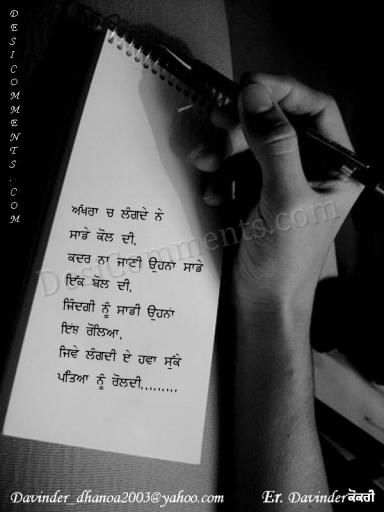 DESICOMMENTS.COM
ਅਖਰਾ ਚ ਲੰਗਦੇ ਨੇ
ਸਾਡੇ ਕੋਲ ਦੀ,
ਕਦਰ ਨਾ ਜਾਣੀ ਉਹਨਾ ਸਾਡੇ
ਇੱਕ ਬੋਲ ਦੀ,
ਜ਼ਿੰਦਗੀ ਨੂੰ ਸਾਡੀ ਉਹਨਾ
ਇੰਝ ਰੋਲਿਆ,
ਜਿਵੇ ਲੰਗਦੀ ਏ ਹਵਾ ਸੁੱਕੇ
ਪਤਿਆ ਨੂੰ ਰੋਲਦੀ.........
DesiComments.com
Davinder_dhanoa2003@yahoo.com
Er. Davinder ਕੋਕਰੀ